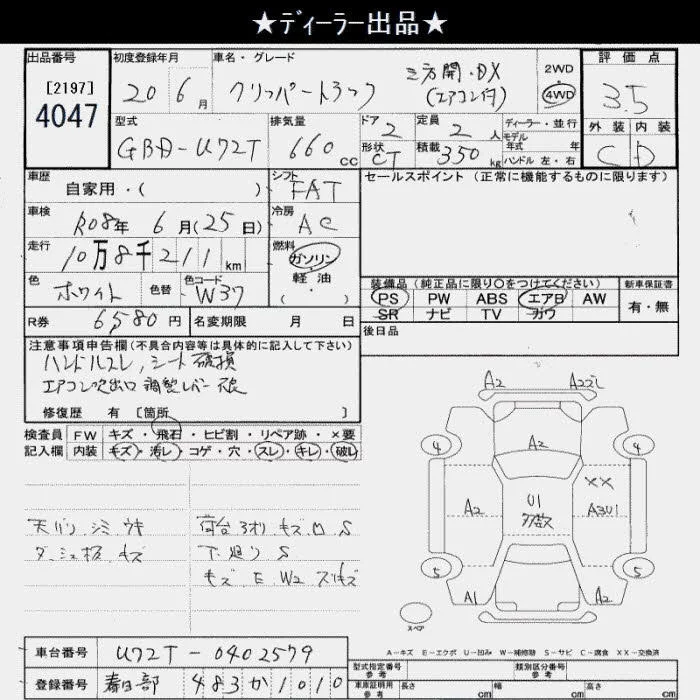 ★ディーラー出品★
出品番号 初度登録年月 車名・グレード 評価点
[2197] 20年 6月 クリッパートラック 三方開・DX 2WD
4047 (エアコン付) 4WD 3.5
型式 排気量 ドア 定員 ディーラー・並行 外装 内装
GBD-U72T 660cc 2 2人 モデル 年式 年 C D
形状 CT 積載 350kg ハンドル 左・右
車歴 自家用・( ) シフト FAT セールスポイント (正常に機能するものに限ります)
車検 R08年 6月(25日) 冷房 AC
走行 10万8千211km 燃料 ガソリン
軽油
( )
色 ホワイト 色替 色コード W37 装備品(純正品に限り○をつけてください) 新車保証書
PS PW ABS エアB AW 有・無
SR ナビ TV ガワ
R券 6,580円 名変期限 月 日 後日品
注意事項申告欄(不具合内容等は具体的に記入して下さい)
ハンドルスレ,シート破損
エアコン吹出口 調整レバー 欠
修復歴 有 [箇所 ]
検査員 FW キズ・飛石・ヒビ割・リペア跡・×要
記入欄 内装 キズ・汚レ・コゲ・穴・スレ・キレ・破レ
A2 A22L
A2
4 4
XX
A2 U1 A3U1
多数
5 5
A1 A2
スペア
天バリ シミ ウキ 荷台 3オリ キズ ロ S
ダッシュ板 キズ 下廻り S
キズ E W2 スリキズ
A－キズ E－エクボ U－凹み W－補修跡 S－サビ C－腐食 XX－交換済
車台番号 U72T-0402579 型式指定番号 参考 類別区分番号 参考
登録番号 春日部 483か1010 車庫証明用 参考 長さ cm 幅 cm 高さ cm